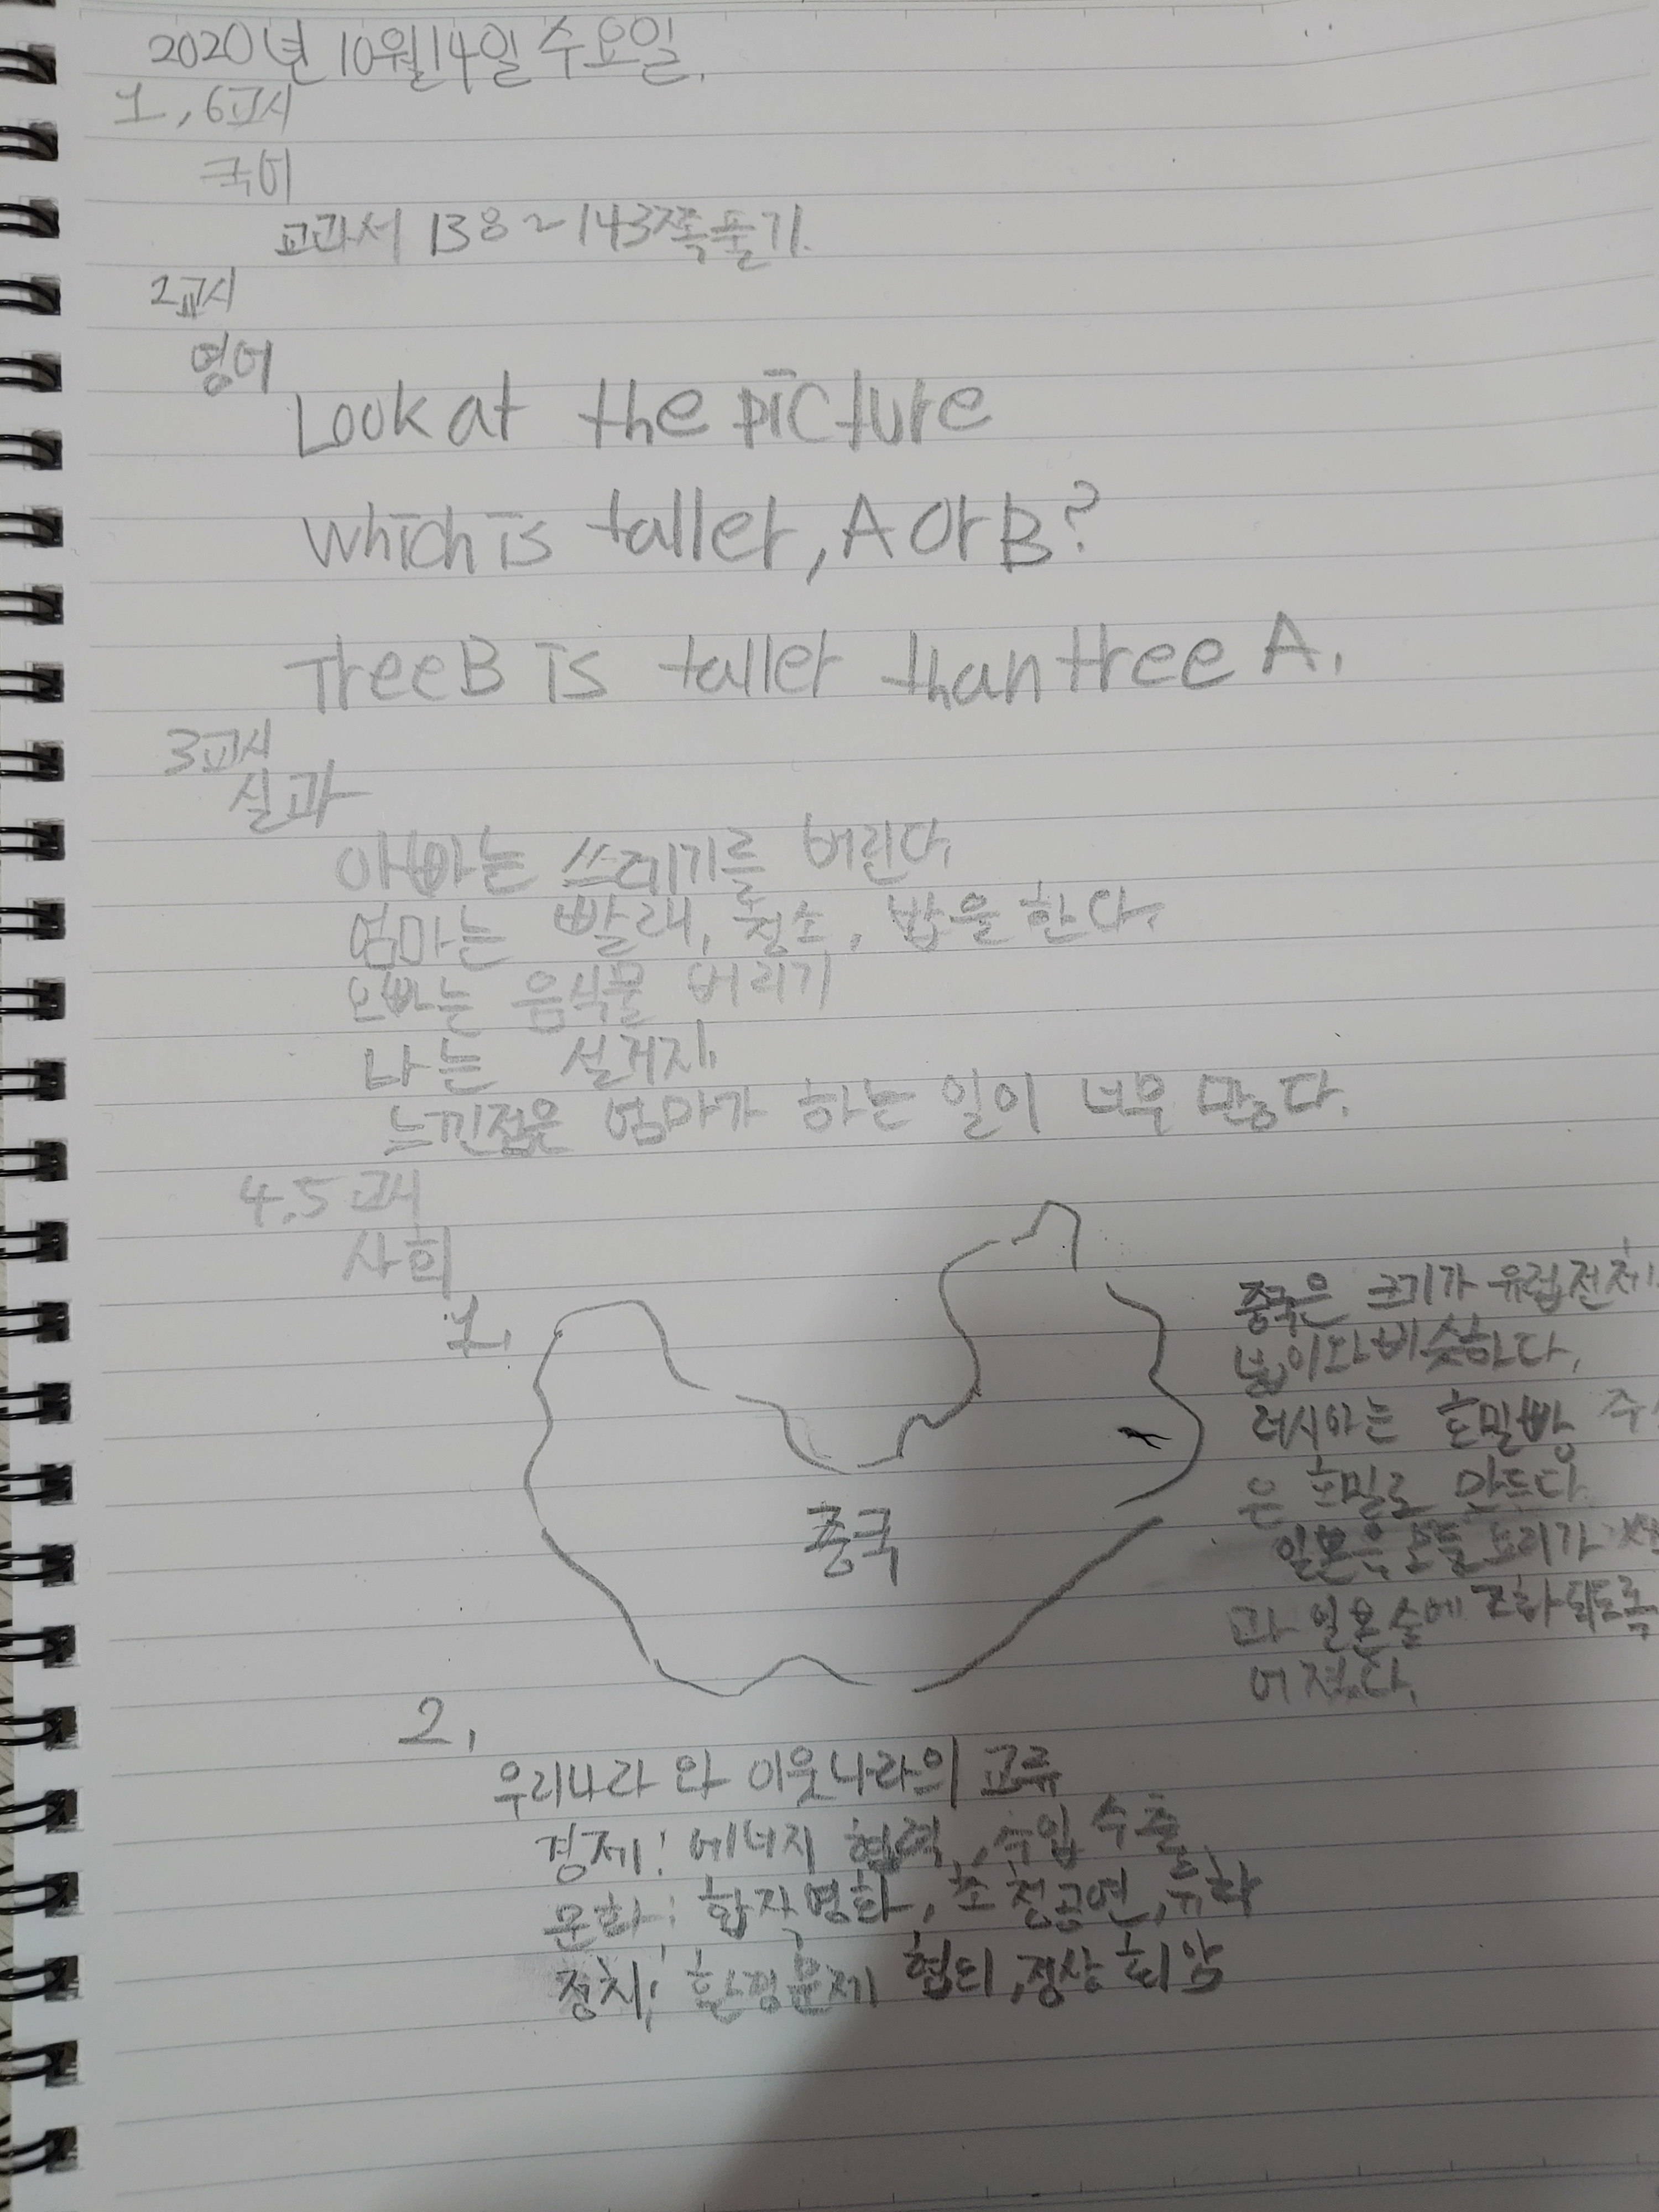 2020년 10월 14일 수요일.
1, 6교시
국어
교과서 138~143쪽 풀기.
2교시
영어
Look at the picture
which is taller, A or B?
Tree B is taller than tree A.
3교시
실과
아빠는 쓰레기를 버린다.
엄마는 빨래, 청소, 밥을 한다.
오빠는 음식물 버리기
나는 설거지.
느낀점은 엄마가 하는 일이 너무 많다.
4, 5교시
사회
1.
중국
중국은 크기가 유럽전체
넓이와 비슷하다.
러시아는 호밀빵
은 호밀로 만든다.
일본은 요리가
과 일본술에 조화되도록
어졌다.
2.
우리나라와 이웃나라의 교류
경제: 에너지 협력, 수입 수출
문화: 합작영화, 초청공연, 유학
정치: 환경문제 협의, 정상회담